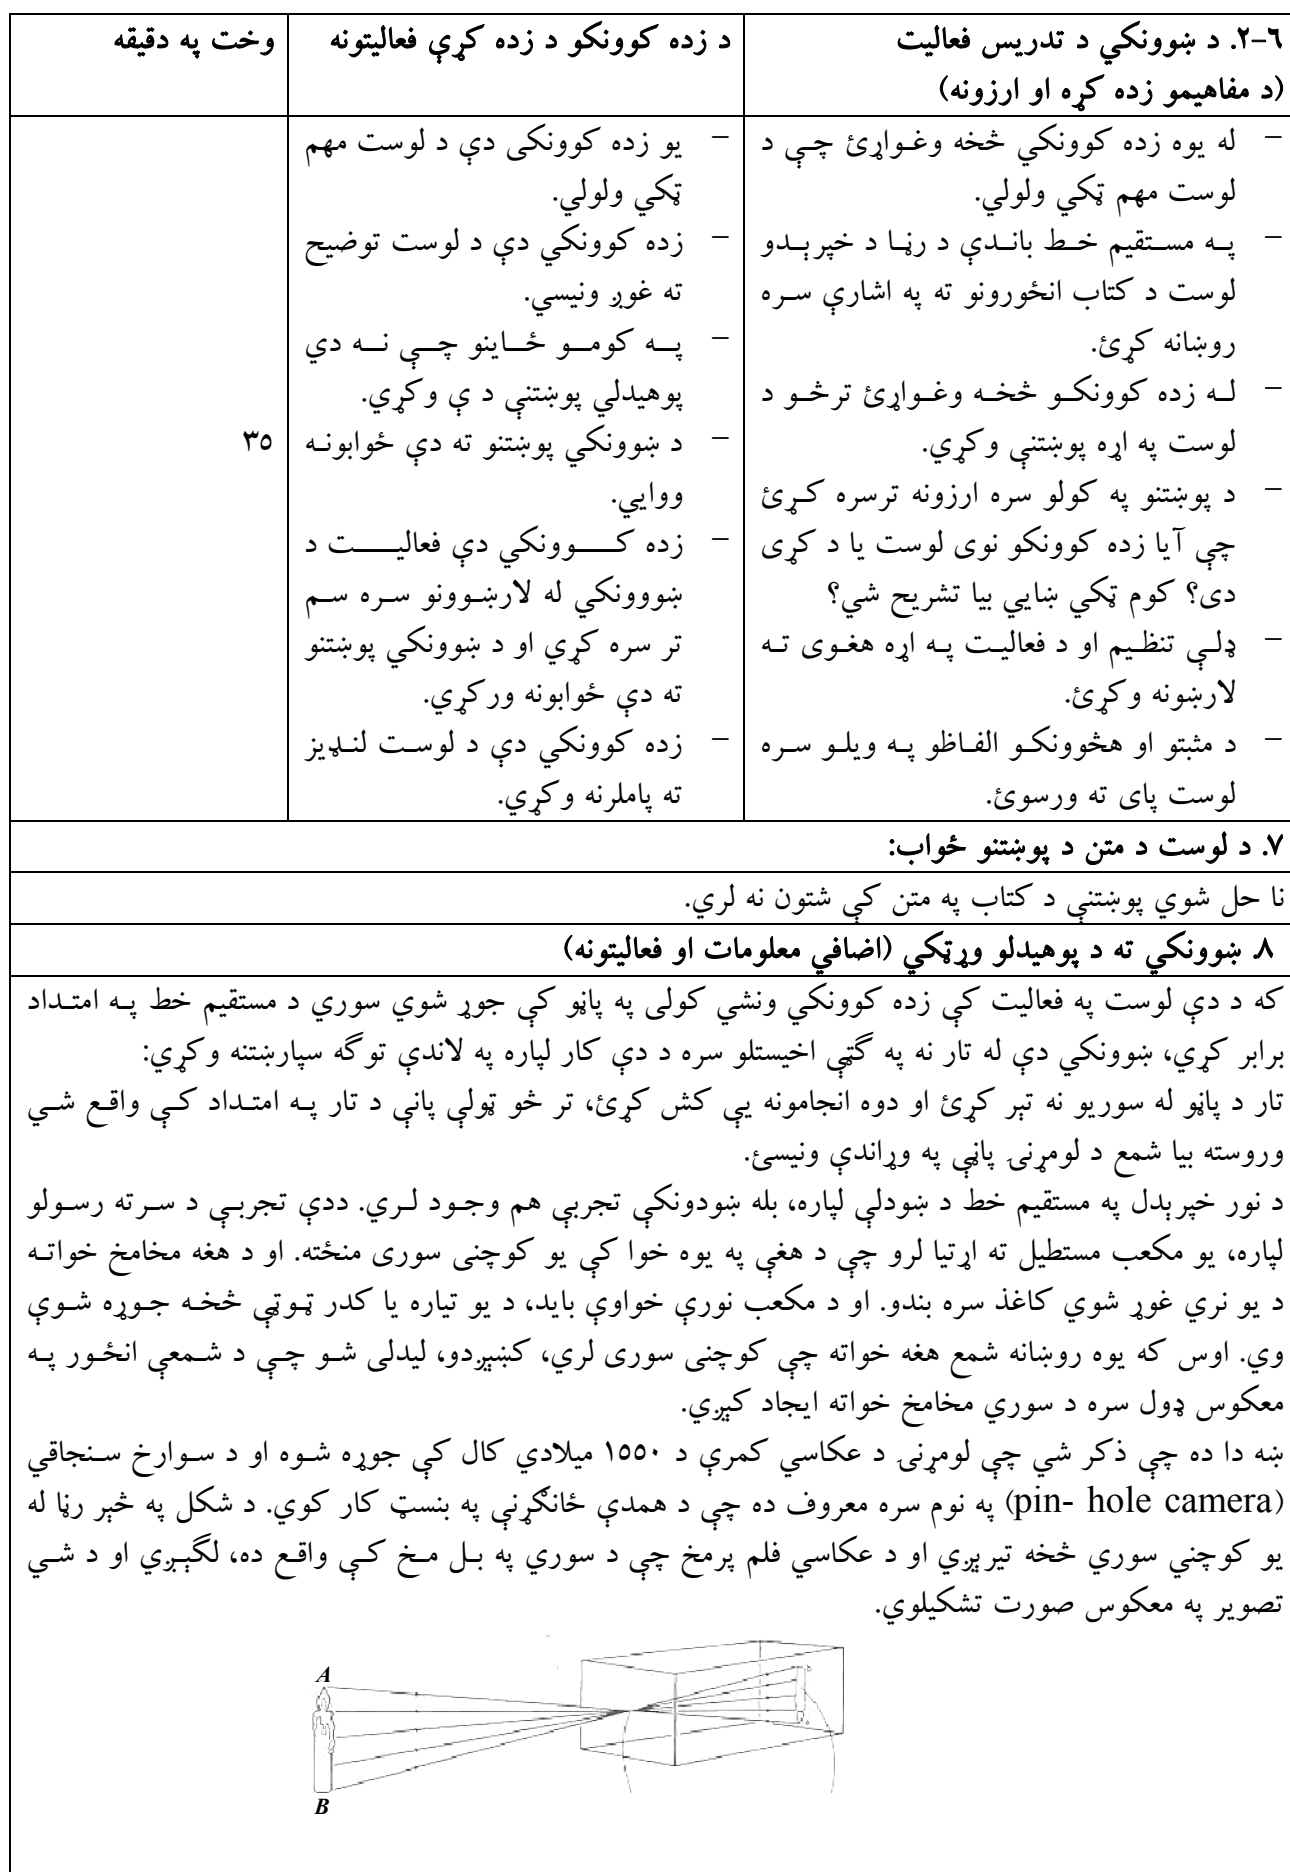 ۶-۲. د ښوونکي د تدریس فعالیت
(د مفاهیمو زده کړه او ارزونه)
د زده کوونکو د زده کړې فعالیتونه
وخت په دقیقه
– له یوه زده کوونکي څخه وغواړئ چې د
لوست مهم ټکي ولولي.
– په مستقیم خط باندې د رڼا د خپرېدو
لوست د کتاب انځورونو ته په اشارې سره
روښانه کړئ.
– له زده کوونکو څخه وغواړئ ترڅو د
لوست په اړه پوښتنې وکړي.
– د پوښتنو په کولو سره ارزونه ترسره کړئ
چې آیا زده کوونکو نوی لوست یا د کړی
دی؟ کوم ټکي ښایي بیا تشریح شي؟
– ډلې تنظیم او د فعالیت په اړه هغوی ته
لارښونه وکړئ.
– د مثبتو او هڅوونکو الفاظو په ویلو سره
لوست پای ته ورسوئ.
– یو زده کوونکی دې د لوست مهم
ټکي ولولي.
– زده کوونکي دې د لوست توضیح
ته غوږ ونیسي.
– په کومو ځاینو چې نه دي
پوهیدلي پوښتنې د ې وکړي.
– د ښوونکي پوښتنو ته دې ځوابونه
ووایي.
– زده کوونکي دې فعالیت د
ښووونکي له لارښوونو سره سم
تر سره کړي او د ښوونکي پوښتنو
ته دې ځوابونه ورکړي.
– زده کوونکي دې د لوست لنډیز
ته پاملرنه وکړي.
۳۵
۷. د لوست د متن د پوښتنو ځواب:
نا حل شوي پوښتنې د کتاب په متن کې شتون نه لري.
۸. ښوونکي ته د پوهیدلو وړټکي (اضافي معلومات او فعالیتونه)
که د دې لوست په فعالیت کې زده کوونکي ونشي کولی په پاڼو کې جوړ شوي سوري د مستقیم خط په امتداد
برابر کړي، ښوونکي دې له تار نه په گټې اخیستلو سره د دې کار لپاره په لاندې توگه سپارښتنه وکړي:
تار د پاڼو له سوریو نه تېر کړئ او دوه انجامونه یې کش کړئ، تر څو ټولې پانې د تار په امتداد کې واقع شي
وروسته بیا شمع د لومړنۍ پاڼې په وړاندې ونیسئ.
د نور خپرېدل په مستقیم خط د ښودلې لپاره، بله ښودونکې تجربې هم وجود لري. ددې تجربې د سرته رسولو
لپاره، یو مکعب مستطیل ته اړتیا لرو چې د هغې په یوه خوا کې یو کوچنی سوری منځته. او د هغه مخامخ خواته
د یو نري غوړ شوي کاغذ سره بندو. او د مکعب نورې خواوې باید، د یو تیاره یا کدر ټوټې څخه جوړه شوې
وي. اوس که یوه روښانه شمع هغه خواته چې کوچنی سوری لري، کښېږدو، لیدلی شو چې د شمعې انځور په
معکوس ډول سره د سوري مخامخ خواته ایجاد کېږي.
ښه دا ده چې ذکر شي چې لومړنۍ د عکاسي کمرې د ۱۵۵۰ میلادي کال کې جوړه شوه او د سوارخ سنجاقي
(pin- hole camera) په نوم سره معروف ده چې د همدې ځانگړنې په بنسټ کار کوي. د شکل په څېر رڼا له
یو کوچنې سوري څخه تیرېږي او د عکاسي فلم پرمخ چې د سوري په بل مخ کې واقع ده، لگېږي او د شي
تصویر په معکوس صورت تشکیلوي.
A
B